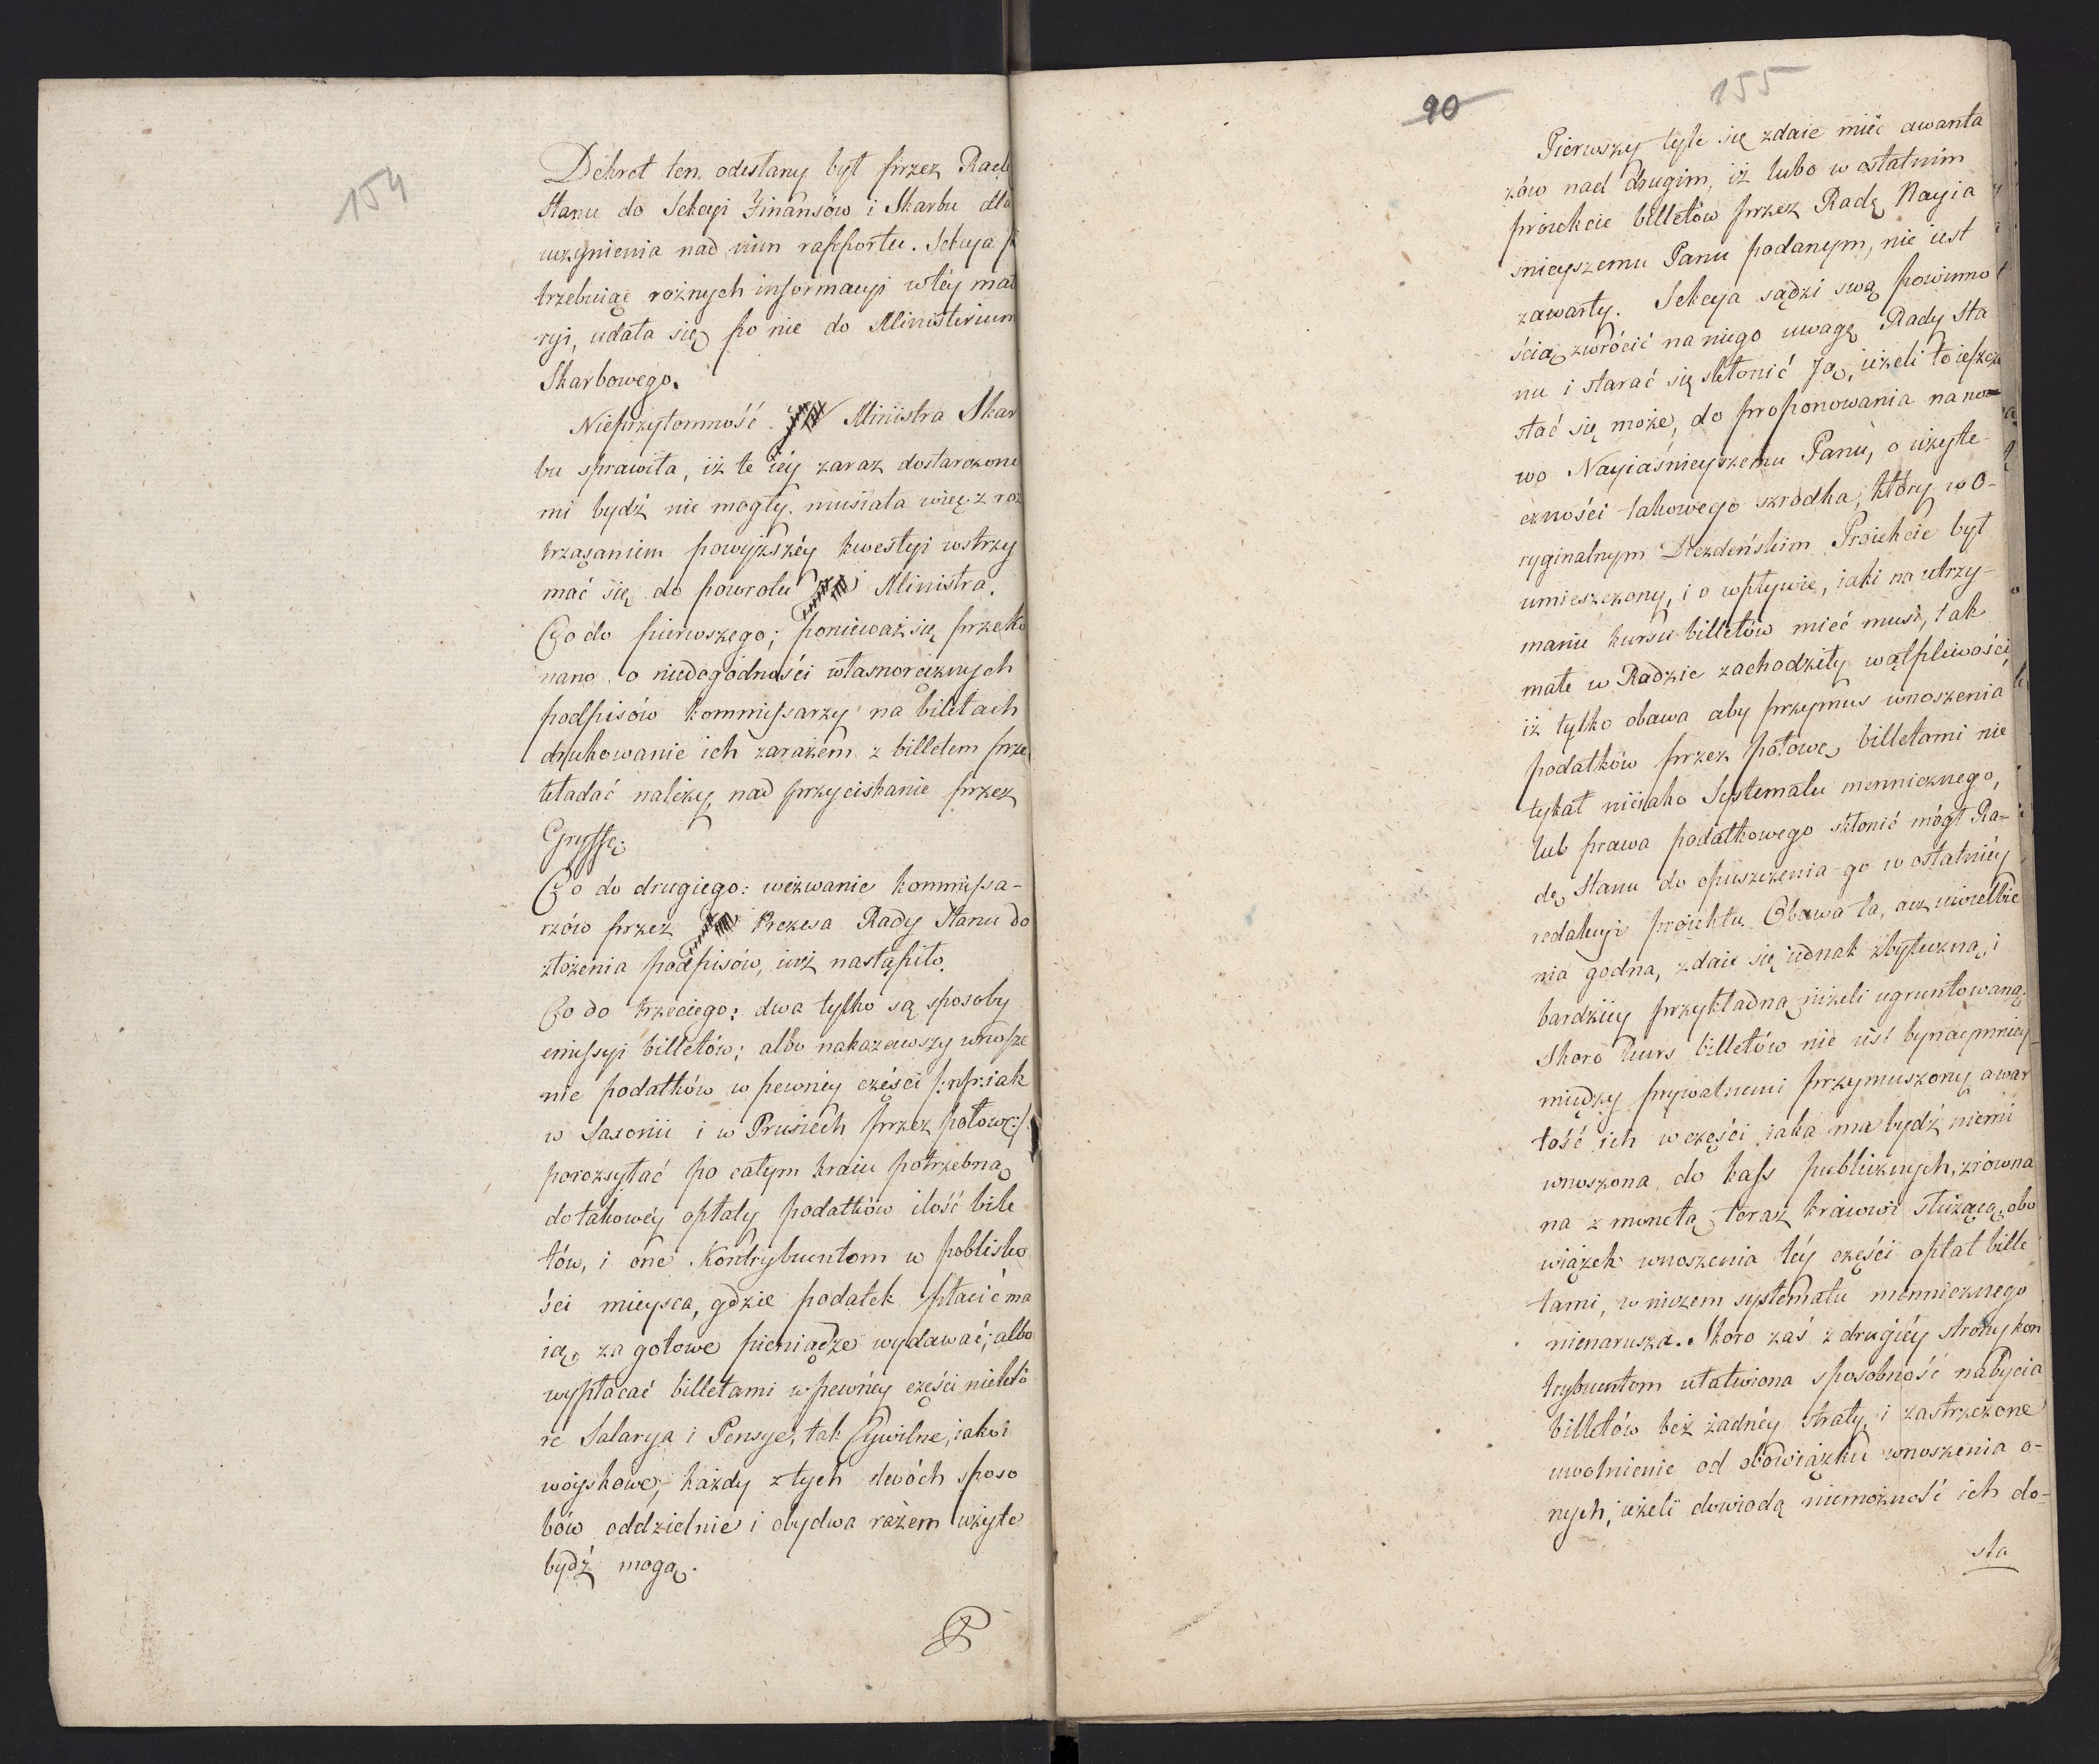 154
Dekret ten odesłany był przez Radę
Stanu do Sekcyi Finansów i Skarbu dla
uczynienia nad nim rapportu. Sekcya
trzebuiąc rożnych informacyi w téy mat
ryi, udała się po nie do Ministerium
Skarbowego.
Nieprzytomność Ministra Skar
bu sprawiła, iż te iéy zaraz dostarczone
mi bydź nie mogły. musiała więc z roz
trząsaniem powyższéy kwestyi wstrzy
mać się do powrotu Ministra.
Co do pierwszego; ponieważ się przeko
nano o niedogodności własnoręcznych
podpisów kommissarzy na biletach
drukowanie ich zarazem z billetem prze
kładać należy nad przyciskanie przez
Gryffę.
Co do drugiego: wezwanie kommissa-
rzów przez Prezesa Rady Stanu do
złożenia podpisów, iuż nastąpiło.
Co do trzeciego: dwa tylko są sposoby
emissyi billetów; albo nakazawszy wnosze
nie podatków w pewnéy części /:npr: iak
w Saxonii i w Prusiech przez połowę:/
porozsyłać po całym kraiu potrzebną
do takowéy opłaty podatków ilość bile
tów, i one Kontrybuentom w poblisko
ści mieysca, gdzie podatek płacić ma
ią, za gotowe pieniądze wydawać; albo
wypłacać billetami w pewnéy części niektó
re Salarya i Pensye, tak Cywilne, iako i
woyskowe; każdy z tych dwóch sposo
bów oddzielnie i obydwa razem użyte
bydź mogą.
P
90
155
Pierwszy tyle się zdaie mieć awanta
zów nad drugim, iż lubo w ostatnim
proiekcie billetów przez Radę Nayia
śnieyszemu Panu podanym, nie iest
zawarty. Sekcya sądzi swą powinno
ścią zwrócić na niego uwagę Rady Sta
nu i starać się skłonić Ją, ieżeli to ieszcze
stać się może, do proponowania na no
wo Nayiaśnieyszemu Panu, o użyte-
czności takowego szrodka, który w O-
ryginalnym Drezdeńskim Proiekcie był
umieszczony, i o wpływie, iaki na utrzy-
maniu kursu billetów mieć musi, tak
małe w Radzie zachodziły wątpliwości,
iż tylko obawa aby przymus wnoszenia
podatków przez połowę billetami nie
tykał nieiako Systematu mennicznego,
lub prawa podatkowego skłonić mógł Ra-
dę Stanu do opuszczenia go w ostatniéy
redakcyi proiektu. Obawa ta, acz uwielbie
nia godna, zdaie się iednak zbyteczną, i
bardziéy przykładną niżeli ugruntowaną.
Skoro kurs billetów nie iest bynaymniéy
między prywatnemi przymuszony a war
tość ich w części iaka ma bydź niemi
wnoszona do kass publicznych, zrówna
na z monetą teraz kraiowi służącą, obo
wiązek wnoszenia téy części opłat bille
tami, w niczem systematu mennicznego
nienarusza. Skoro zaś z drugiéy strony kon
trybuentom ułatwiona sposobność nabycia
billetów bez żadnéy straty, i zastrzeżone
uwolnienie od obowiązku wnoszenia o-
nych, ieżeli dowiodą niemożność ich do-
sta